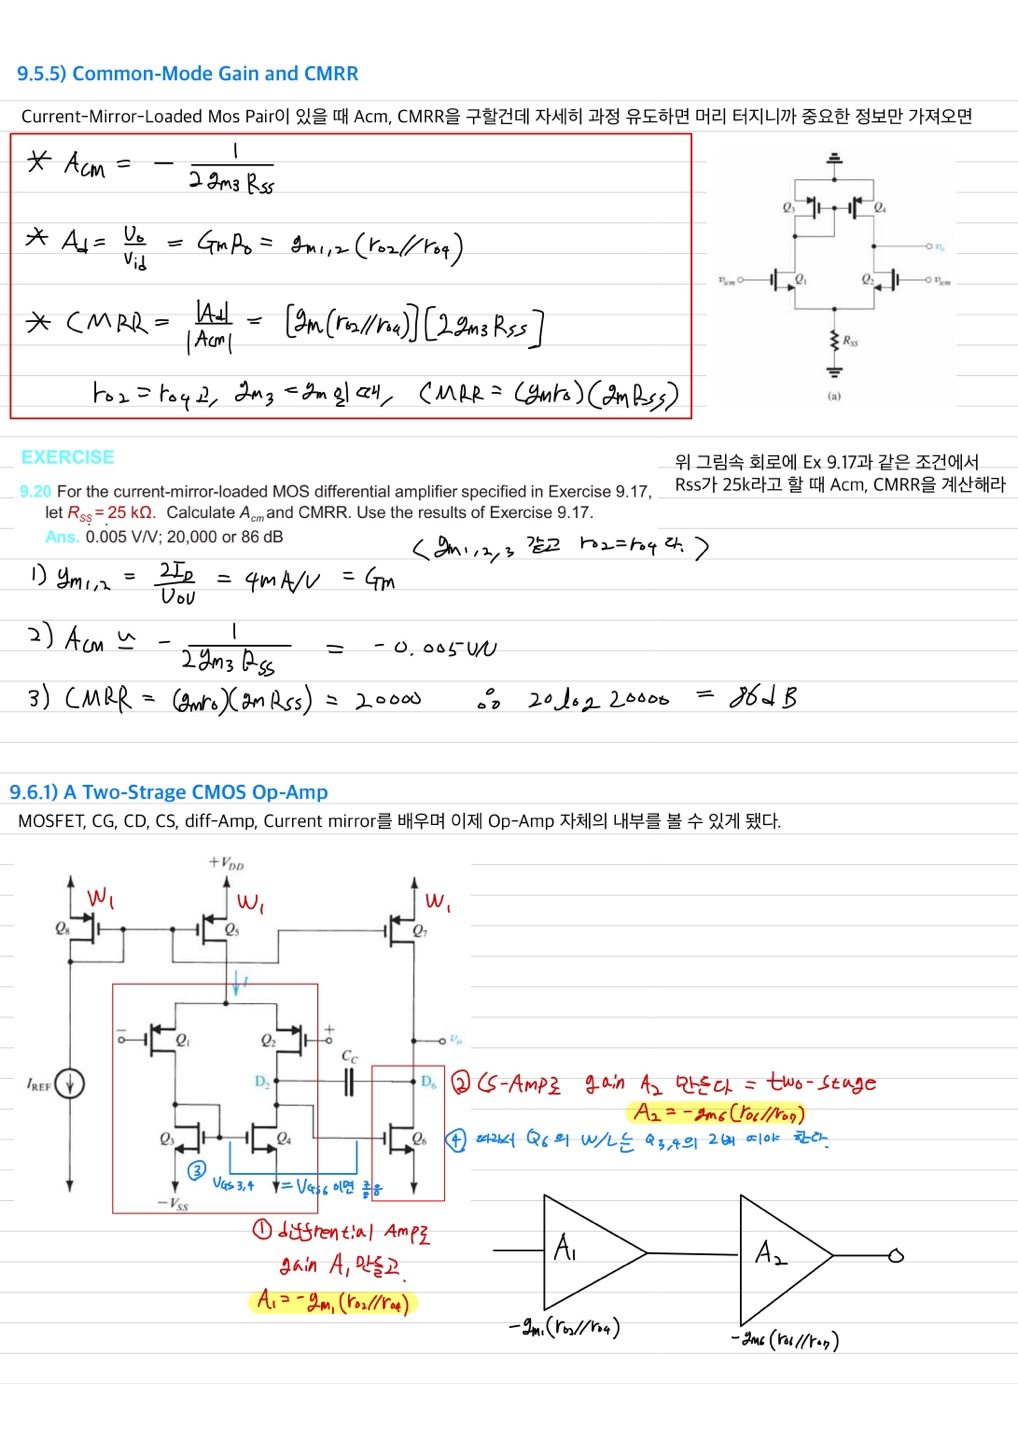 9.5.5) Common-Mode Gain and CMRR
Current-Mirror-Loaded Mos Pair이 있을 때 Acm, CMRR을 구할건데 자세히 과정 유도하면 머리 터지니까 중요한 정보만 가져오면
* Acm = - 1 / 2gm3 Rss
* Ad = Vo / Vid = GmRo = gm1,2 (ro2//ro4)
* CMRR = |Ad| / |Acm| = [gm(ro2//ro4)][2gm3Rss]
ro2 = ro4고, gm3 = gm일 때, CMRR = (gmro)(gmRss)
Q3 Q4
vo
vicm Q1 Q2 vicm
Rss
(a)
EXERCISE
위 그림속 회로에 Ex 9.17과 같은 조건에서
Rss가 25k라고 할 때 Acm, CMRR을 계산해라
9.20 For the current-mirror-loaded MOS differential amplifier specified in Exercise 9.17,
let RSS = 25 kΩ. Calculate Acm and CMRR. Use the results of Exercise 9.17.
Ans. 0.005 V/V; 20,000 or 86 dB
(gm1,2,3 같고 ro2=ro4다.)
1) gm1,2 = 2ID / VOV = 4mA/V = Gm
2) Acm ≃ - 1 / 2gm3 Rss = -0.005V/V
3) CMRR = (gmro)(gm Rss) = 20000 ∴ 20log 20000 = 86dB
9.6.1) A Two-Strage CMOS Op-Amp
MOSFET, CG, CD, CS, diff-Amp, Current mirror를 배우며 이제 Op-Amp 자체의 내부를 볼 수 있게 됐다.
+VDD
W1 W1 W1
Q8 Q5 Q7
I
− Q1 Q2 +
vo
CC
IREF
D2 D6
② CS-Amp로 gain A2 만든다 = two-stage
A2 = -gm6(ro6//ro7)
Q3 Q4 Q6
④ 따라서 Q6의 W/L는 Q3,4의 2배 되야 한다.
③ VGS3,4 = VGS6 이면 좋음
−VSS
① diffrential Amp로
gain A1 만들고.
A1 = -gm1(ro2//ro4)
A1 A2
-gm1(ro2//ro4) -gm6(ro6//ro7)